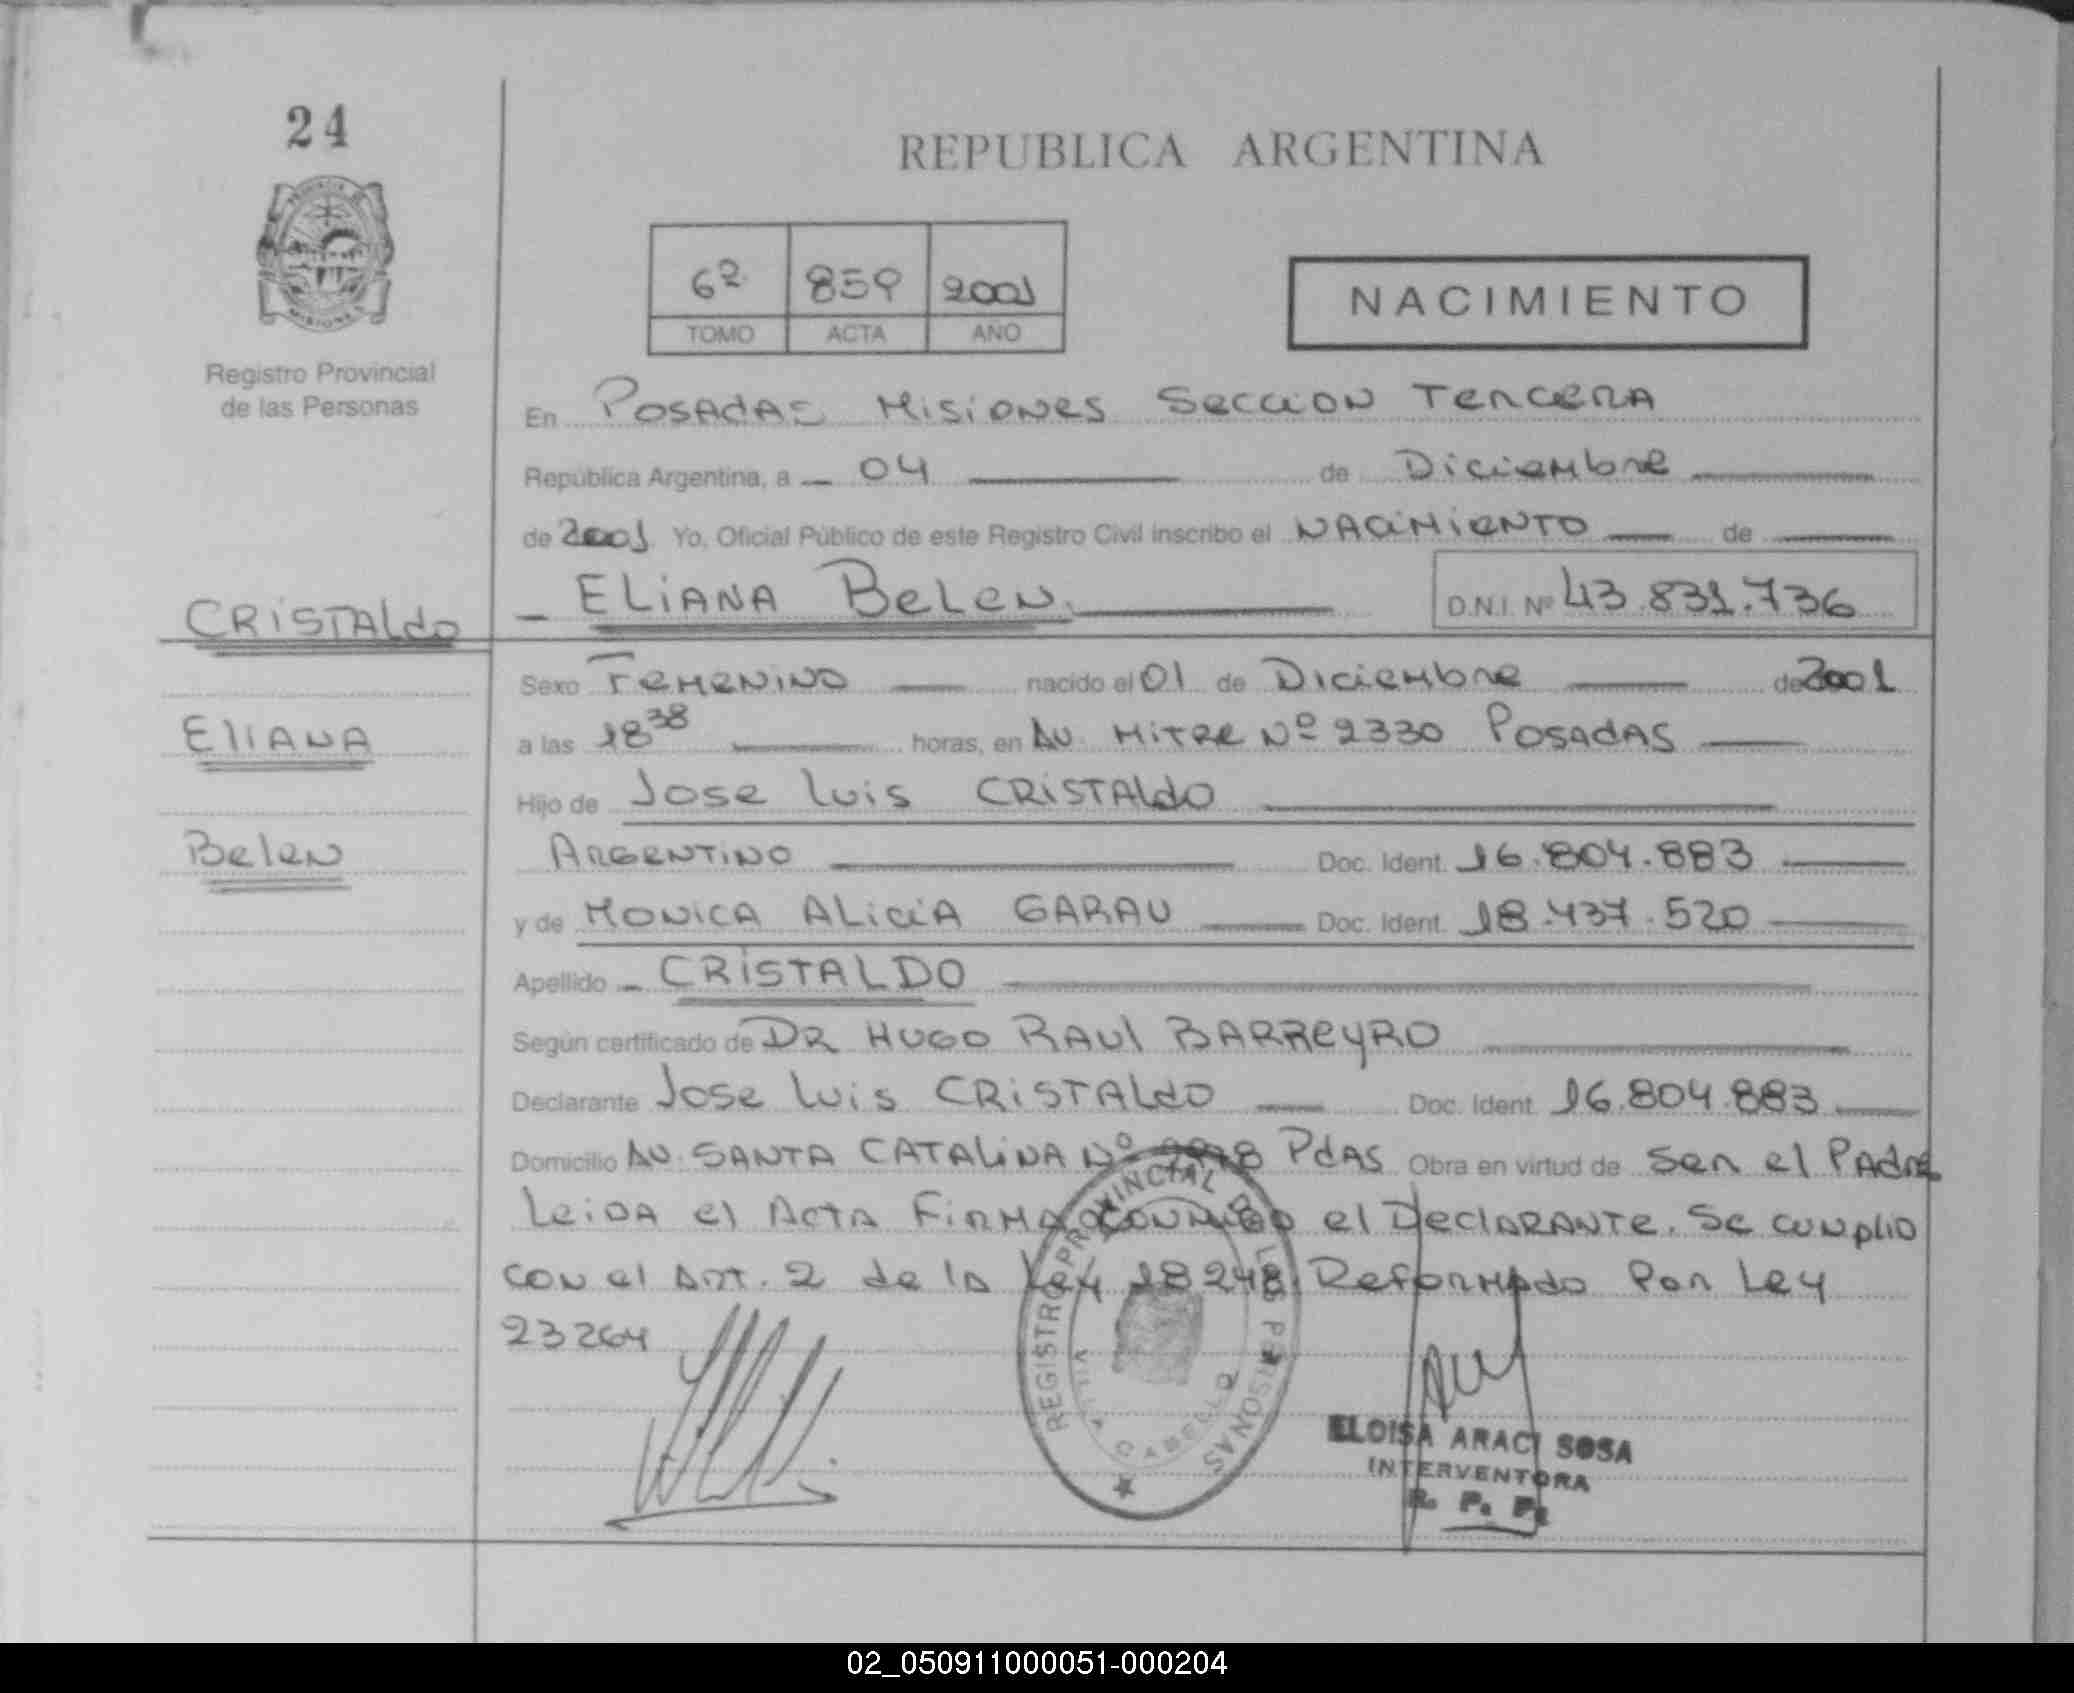 24
REPUBLICA ARGENTINA
6º 859 2001
TOMO ACTA AÑO
NACIMIENTO
Registro Provincial
de las Personas
En POSADAS MISIONES SECCION TERCERA
República Argentina, a 04 de Diciembre
de 2001 Yo, Oficial Público de este Registro Civil inscribo el NACIMIENTO de
CRISTALDO
ELIANA BELEN D.N.I. Nº 43.831.736
Sexo FEMENINO nacido el 01 de Diciembre de 2001
ELIANA
a las 18 38 horas, en AV. MITRE Nº 2330 POSADAS
Hijo de JOSE LUIS CRISTALDO
BELEN
ARGENTINO Doc. Ident. 16.804.883
y de MONICA ALICIA GARAU Doc. Ident. 18.437.520
Apellido CRISTALDO
Según certificado de DR HUGO RAUL BARREYRO
Declarante JOSE LUIS CRISTALDO Doc. Ident. 16.804.883
Domicilio AV. SANTA CATALINA Nº PdAS Obra en virtud de SER el PADRE
Leida el Acta FIRMA CONMIGO el DECLARANTE. Se cumplio
con el Art. 2 de la Ley 18248 Reformado Por Ley
23264
REGISTRO PROVINCIAL DE LAS PERSONAS
VILLA CABELLO
ELOISA ARACI SOSA
INTERVENTORA
R. P. P.
02_050911000051-000204